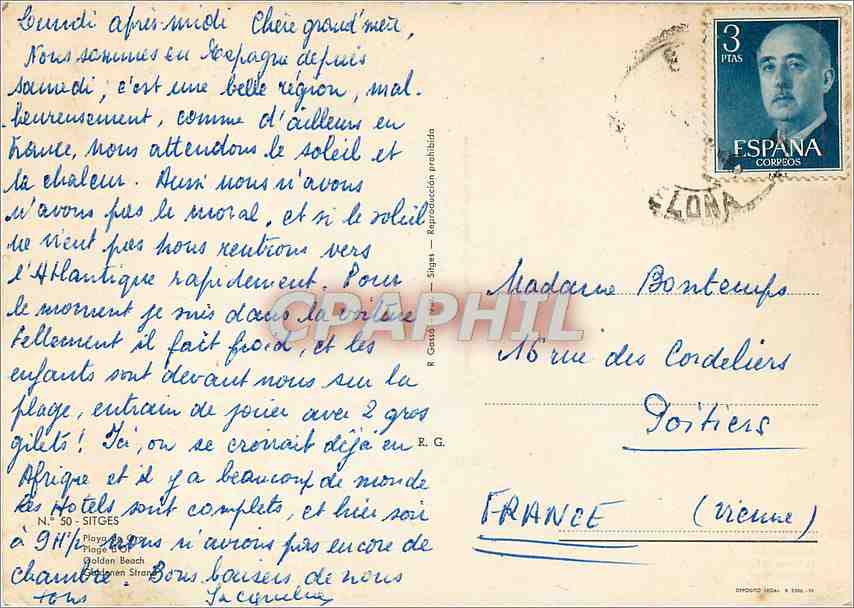 Lundi après-midi Chère grand'mère,
Nous sommes en Espagne depuis
samedi, c'est une belle région, mal-
heureusement, comme d'ailleurs en
France, nous attendons le soleil et
la chaleur. Aussi nous n'avons
n'avons pas le moral, et si le soleil
ne vient pas nous rentrons vers
l'Atlantique rapidement. Pour
le moment je suis dans la voiture
tellement il fait froid, et les
enfants sont devant nous sur la
plage, entrain de jouer avec 2 gros
gilets! Ici, on se croirait déjà en
Afrique et il y a beaucoup de monde
les Hotels sont complets, et hier soir
à 9H½ nous n'avions pas encore de
chambre. Bons baisers de nous
tous Jacqueline
N.º 50 - SITGES
Playa de Oro
Plage d'Or
Golden Beach
Goldenen Strand
R. G.
R Gassó - Sitges — Reproducción prohibida
3
PTAS
ESPAÑA
CORREOS
ELONA
Madame Bontemps
16 rue des Cordeliers
Poitiers
FRANCE (Vienne)
DEPOSITO LEGAL B
CPAPHIL